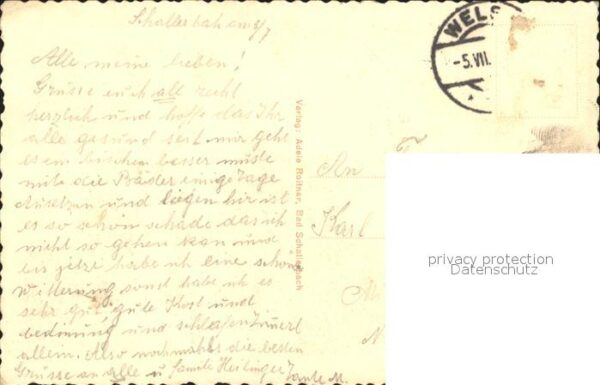 Schallerbach am 4/7
Alle meine lieben!
Grüsse euch all recht
herzlich und hoffe das Ihr
alle gesund seit mir geht
es ein bischen besser müste
mit die Bäder einige Tage
Ausetzen und liegen hir ist
es so schön schade das ich
nicht so gehen kan und
bis jetzt habe ich eine schöne
Witterung sonst habe ich es
sehr gut gute Kost und
bedinung und schlafenzimerl
allein. Also nochmahls die besten
Grüsse an alle u. Familie Heilinger
Tante M.
Verlag: Adele Roitner, Bad Schallerbach
WELS
-5.VII.
An
Karl
privacy protection
Datenschutz